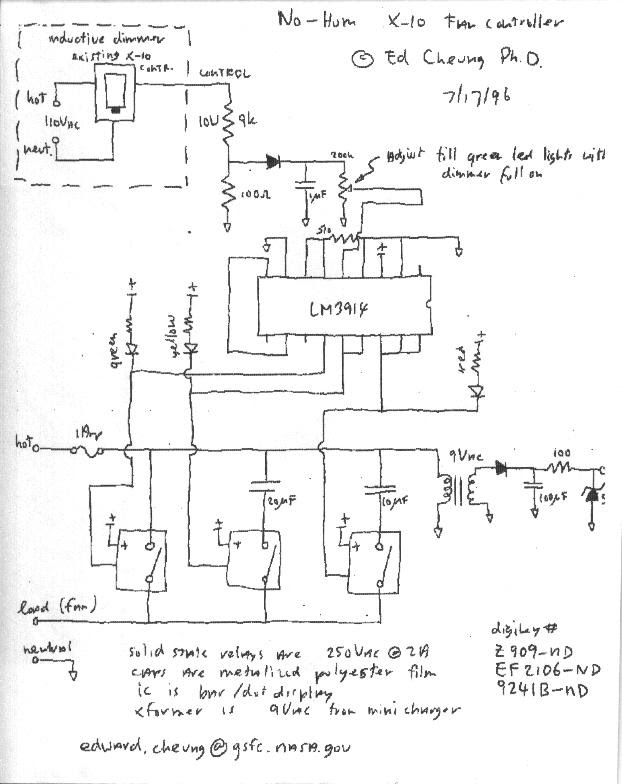 No-Hum X-10 Fan Controller
© Ed Cheung Ph.D.
7/17/96
inductive dimmer
existing X-10
contr.
CONTROL
hot
110VAC
neut.
10W
9k
100Ω
1µF
200k
Adjust till green led lights with
dimmer full on
510
+
LM3914
+
green
+
yellow
+
red
hot
1Amp
20µF
10µF
9VAC
100
100µF
+
+
+
+
+
+
load (fan)
neutral
solid state relays are 250VAC @ 2A
caps are metalized polyester film
ic is bar/dot display
xformer is 9VAC from minicharger
digikey #
Z909-ND
EF2106-ND
9241B-ND
edward.cheung@gsfc.nasa.gov